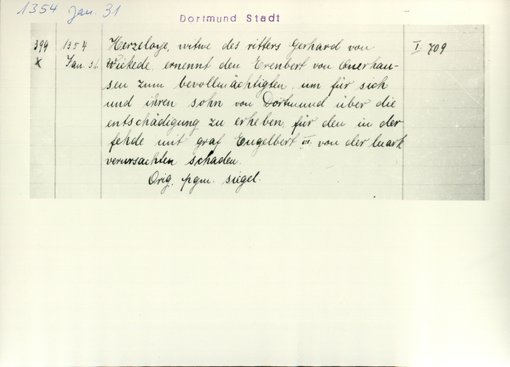 1354 Jan. 31
Dortmund Stadt
399 1354 Herzeloye, witwe des ritters Gerhard von I 709
x Jan 31. Wickede ernennt den Erenbert von
sen zum bevollmächtigten, um für sich
und ihren sohn von Dortmund über die
entschädigung zu erheben, für den in der
fehde mit graf Engelbert III. von der Mark
verursachten schaden.
Orig. pgm. siegel.